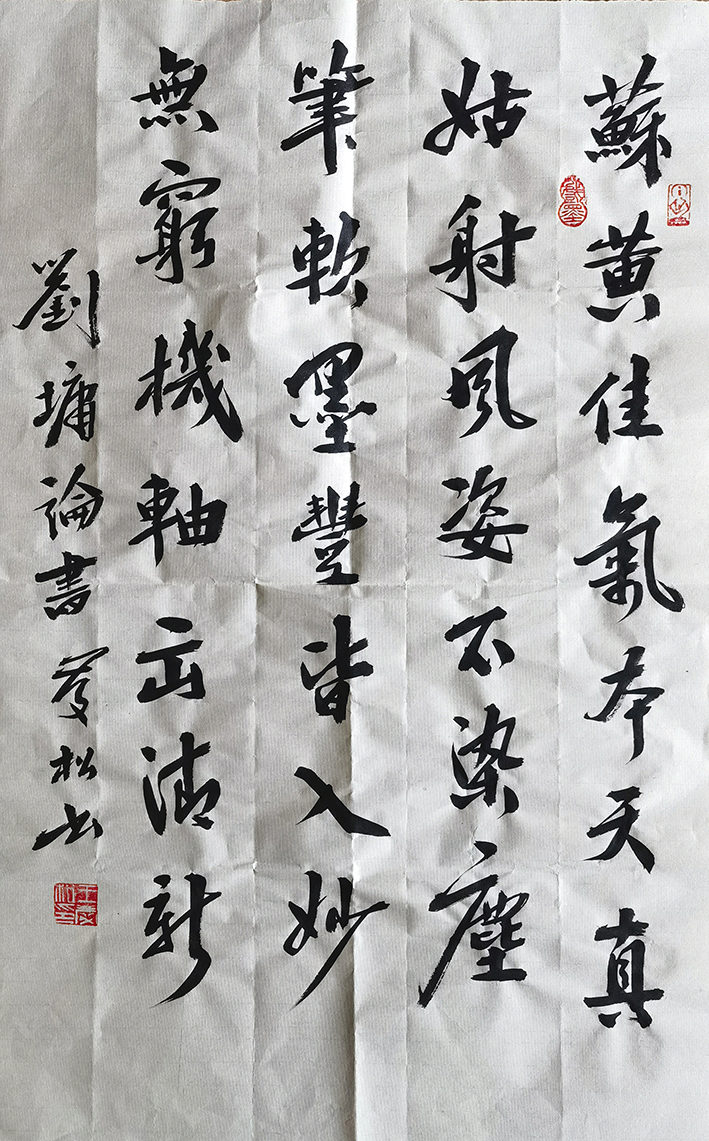 蘇黄佳氣本天真
姑射風姿不染塵
筆軟墨豐皆入妙
無窮機軸出清新
劉墉論書 松书